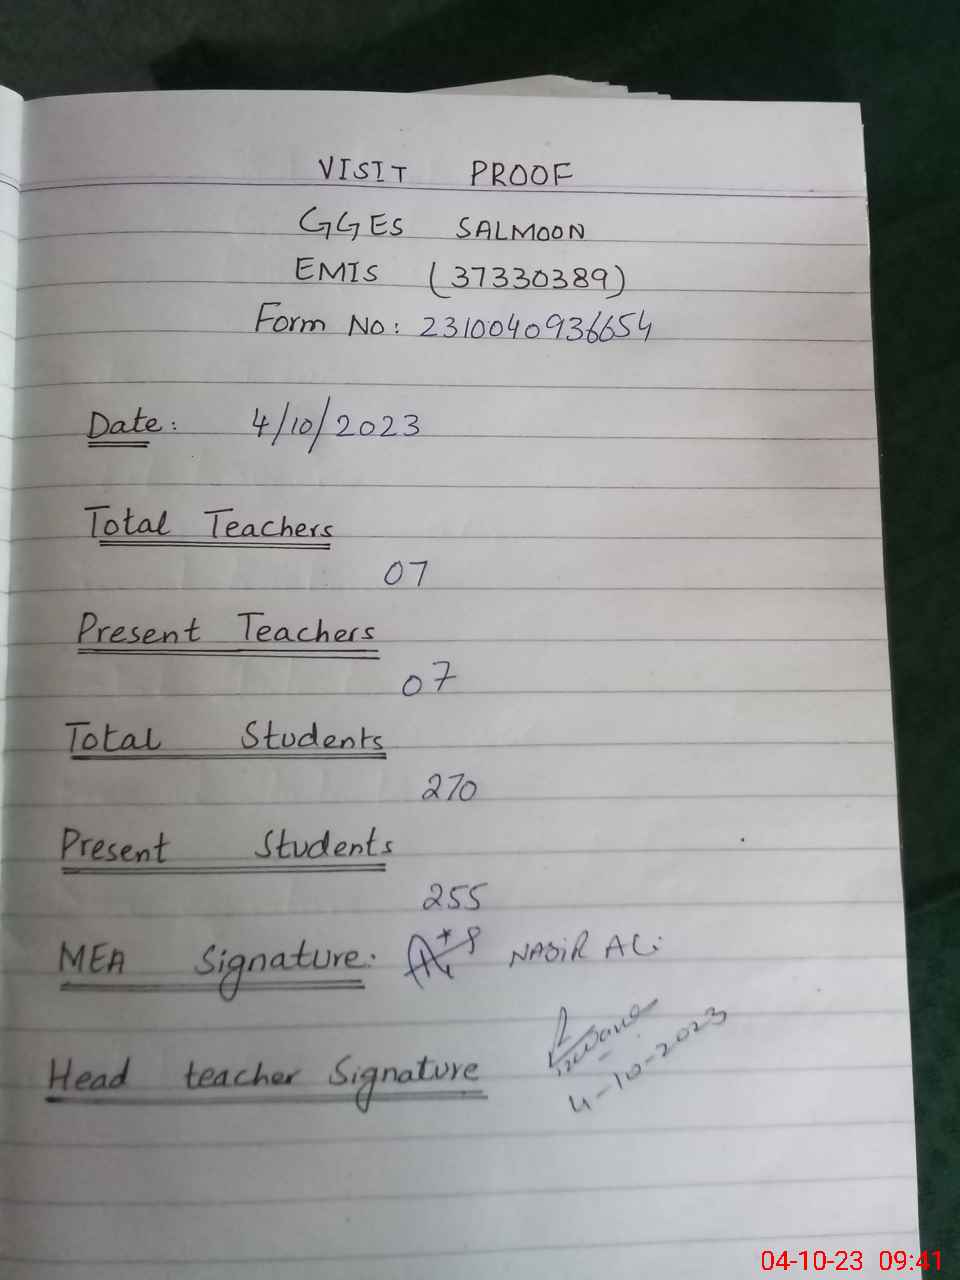 VISIT PROOF
GGES SALMOON
EMIS (37330389)
Form No: 2310040936654
Date: 4/10/2023
Total Teachers
07
Present Teachers
07
Total Students
270
Present Students
255
MEA Signature: NASIR ALi
Head teacher Signature
4-10-2023
04-10-23 09:41